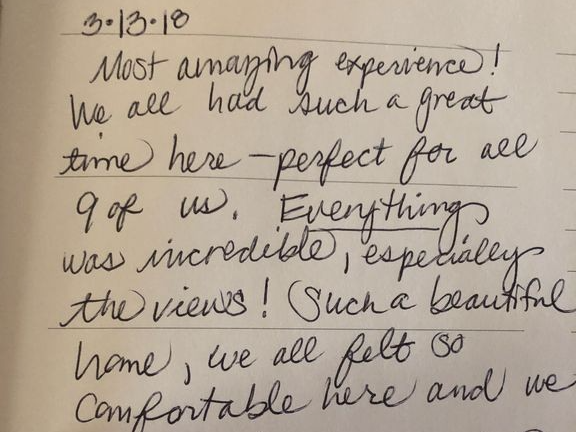 3•13•18
Most amazing experience!
We all had such a great
time here – perfect for all
9 of us. Everything
was incredible, especially
the views! Such a beautiful
home, we all felt so
comfortable here and we